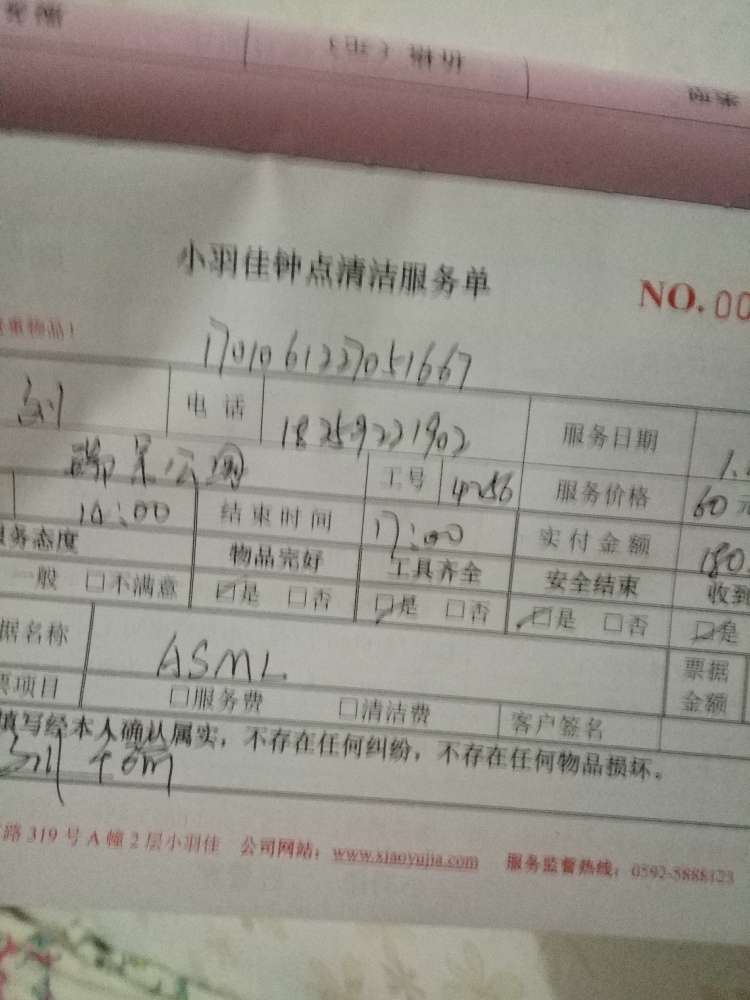 价格（元）
小羽佳钟点清洁服务单
NO. 00
重物品！
1701061227051667
刘 电话 18259221902 服务日期 1.
公园 工号 4256 服务价格 60元
14:00 结束时间 17:00 实付金额 180.
服务态度 物品完好 工具齐全 安全结束 收到
一般 □不满意 ☑是 □否 ☑是 □否 ☑是 □否 ☑是
据名称 ASML 票据
金额
票项目 □服务费 □清洁费 客户签名
填写经本人确认属实，不存在任何纠纷，不存在任何物品损坏。
路319号A幢2层小羽佳 公司网站：www.xiaoyujia.com 服务监督热线：0592-5888123